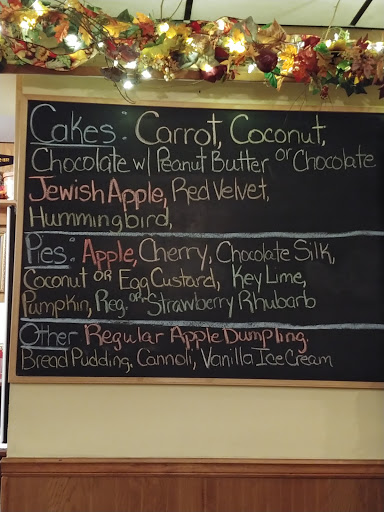 Cakes: Carrot, Coconut,
Chocolate w/ Peanut Butter or Chocolate
Jewish Apple, Red Velvet,
Hummingbird,
Pies: Apple, Cherry, Chocolate Silk,
Coconut or Egg Custard, Key Lime,
Pumpkin, Reg. or Strawberry Rhubarb
Other Regular Apple Dumpling,
Bread Pudding, Cannoli, Vanilla Ice Cream